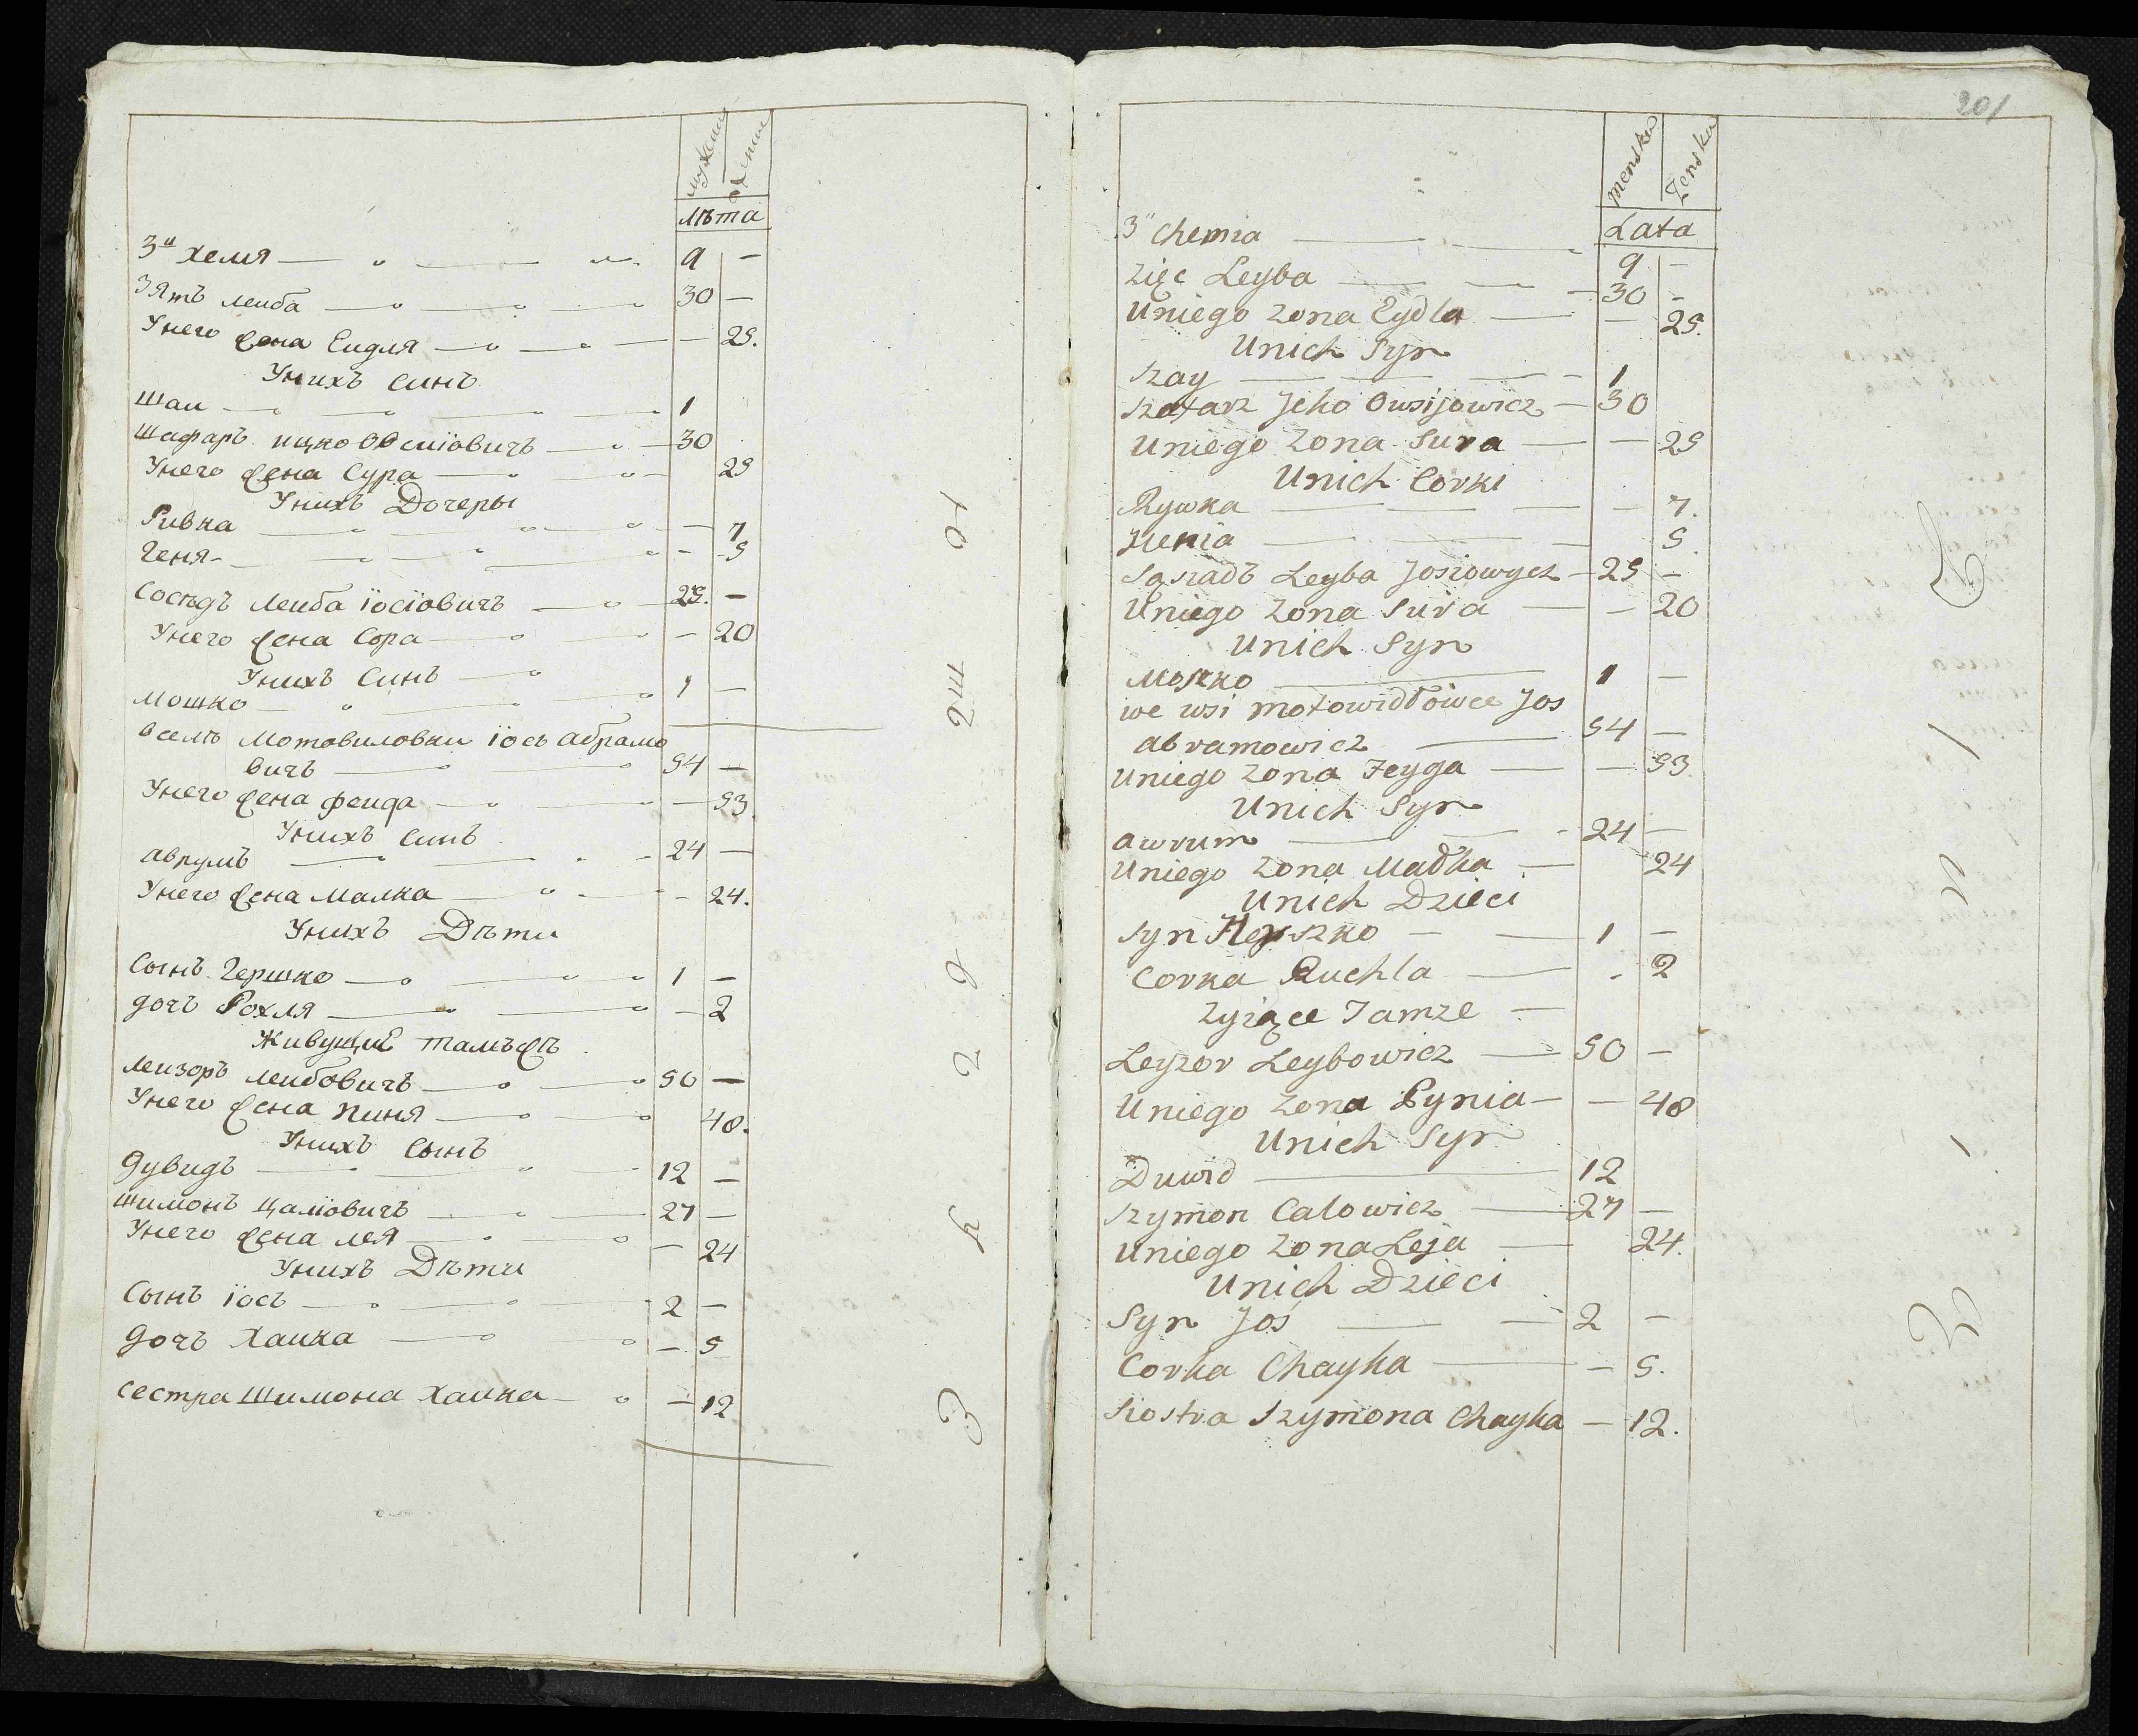 мужеска женска
Лѣта
3й Хемя 9 —
Зять Леиба 30 —
Унего жена Еидля — 25.
Унихъ Синъ
Шаи 1
Шафаръ ицко Овсиiовичъ 30
Унего жена Сура 25
Унихъ Дочеры
Ривка — 7
Геня — 5
Сосѣдъ Леиба iосiовичъ 25. —
Унего жена Сора — 20
Унихъ Синъ
Мошко 1 —
Вселѣ Мотовиловки iосъ Абрамо
вичъ 54 —
Унего жена Феига — 53.
Унихъ Синъ
Аврумъ 24 —
Унего жена Малка — 24.
Унихъ Дѣти
Сынъ Гершко 1 —
дочь Рохля — 2
Живущие тамъжъ
Леизоръ Леибовичъ 50 —
Унего жена Пиня 48.
Унихъ Сынъ
Дувидъ 12 —
Шимонъ Цалiовичъ 27 —
Унего жена Лея — 24
Унихъ Дѣти
Сынъ iосъ 2 —
Дочъ Хаика — 5
Сестра Шимона Хаика — 12
201
menska Zenska
Lata
3" Chemia 9 —
Zięc Leyba 30 —
Uniego Zona Eydla — 25.
Unich Syn
Szay 1
Szafarz Jcko Owsijowicz 30
Uniego Zona Sura — 25
Unich Corki
Rywka — 7.
Henia 5.
Sąsiadъ Leyba Josiowycz 25 —
Uniego Zona Sura — 20
Unich Syn
Moszko 1 —
we wsi Motowidłowce Jos
Abramowicz 54 —
Uniego Zona Feyga — 53
Unich Syn
Awrum 24 —
Uniego Zona Małka 24
Unich Dzieci
Syn Herszko 1 —
Corka Ruchla - 2
Zyiące Tamze
Leyzor Leybowicz 50 —
Uniego Zona Pynia — 48
Unich Syn
Duwid 12
Szymon Calowicz 27 —
Uniego Zona Leja 24.
Unich Dzieci
Syn Joś 2 —
Corka Chayka — 5.
Siostra Szymona Chayka — 12.